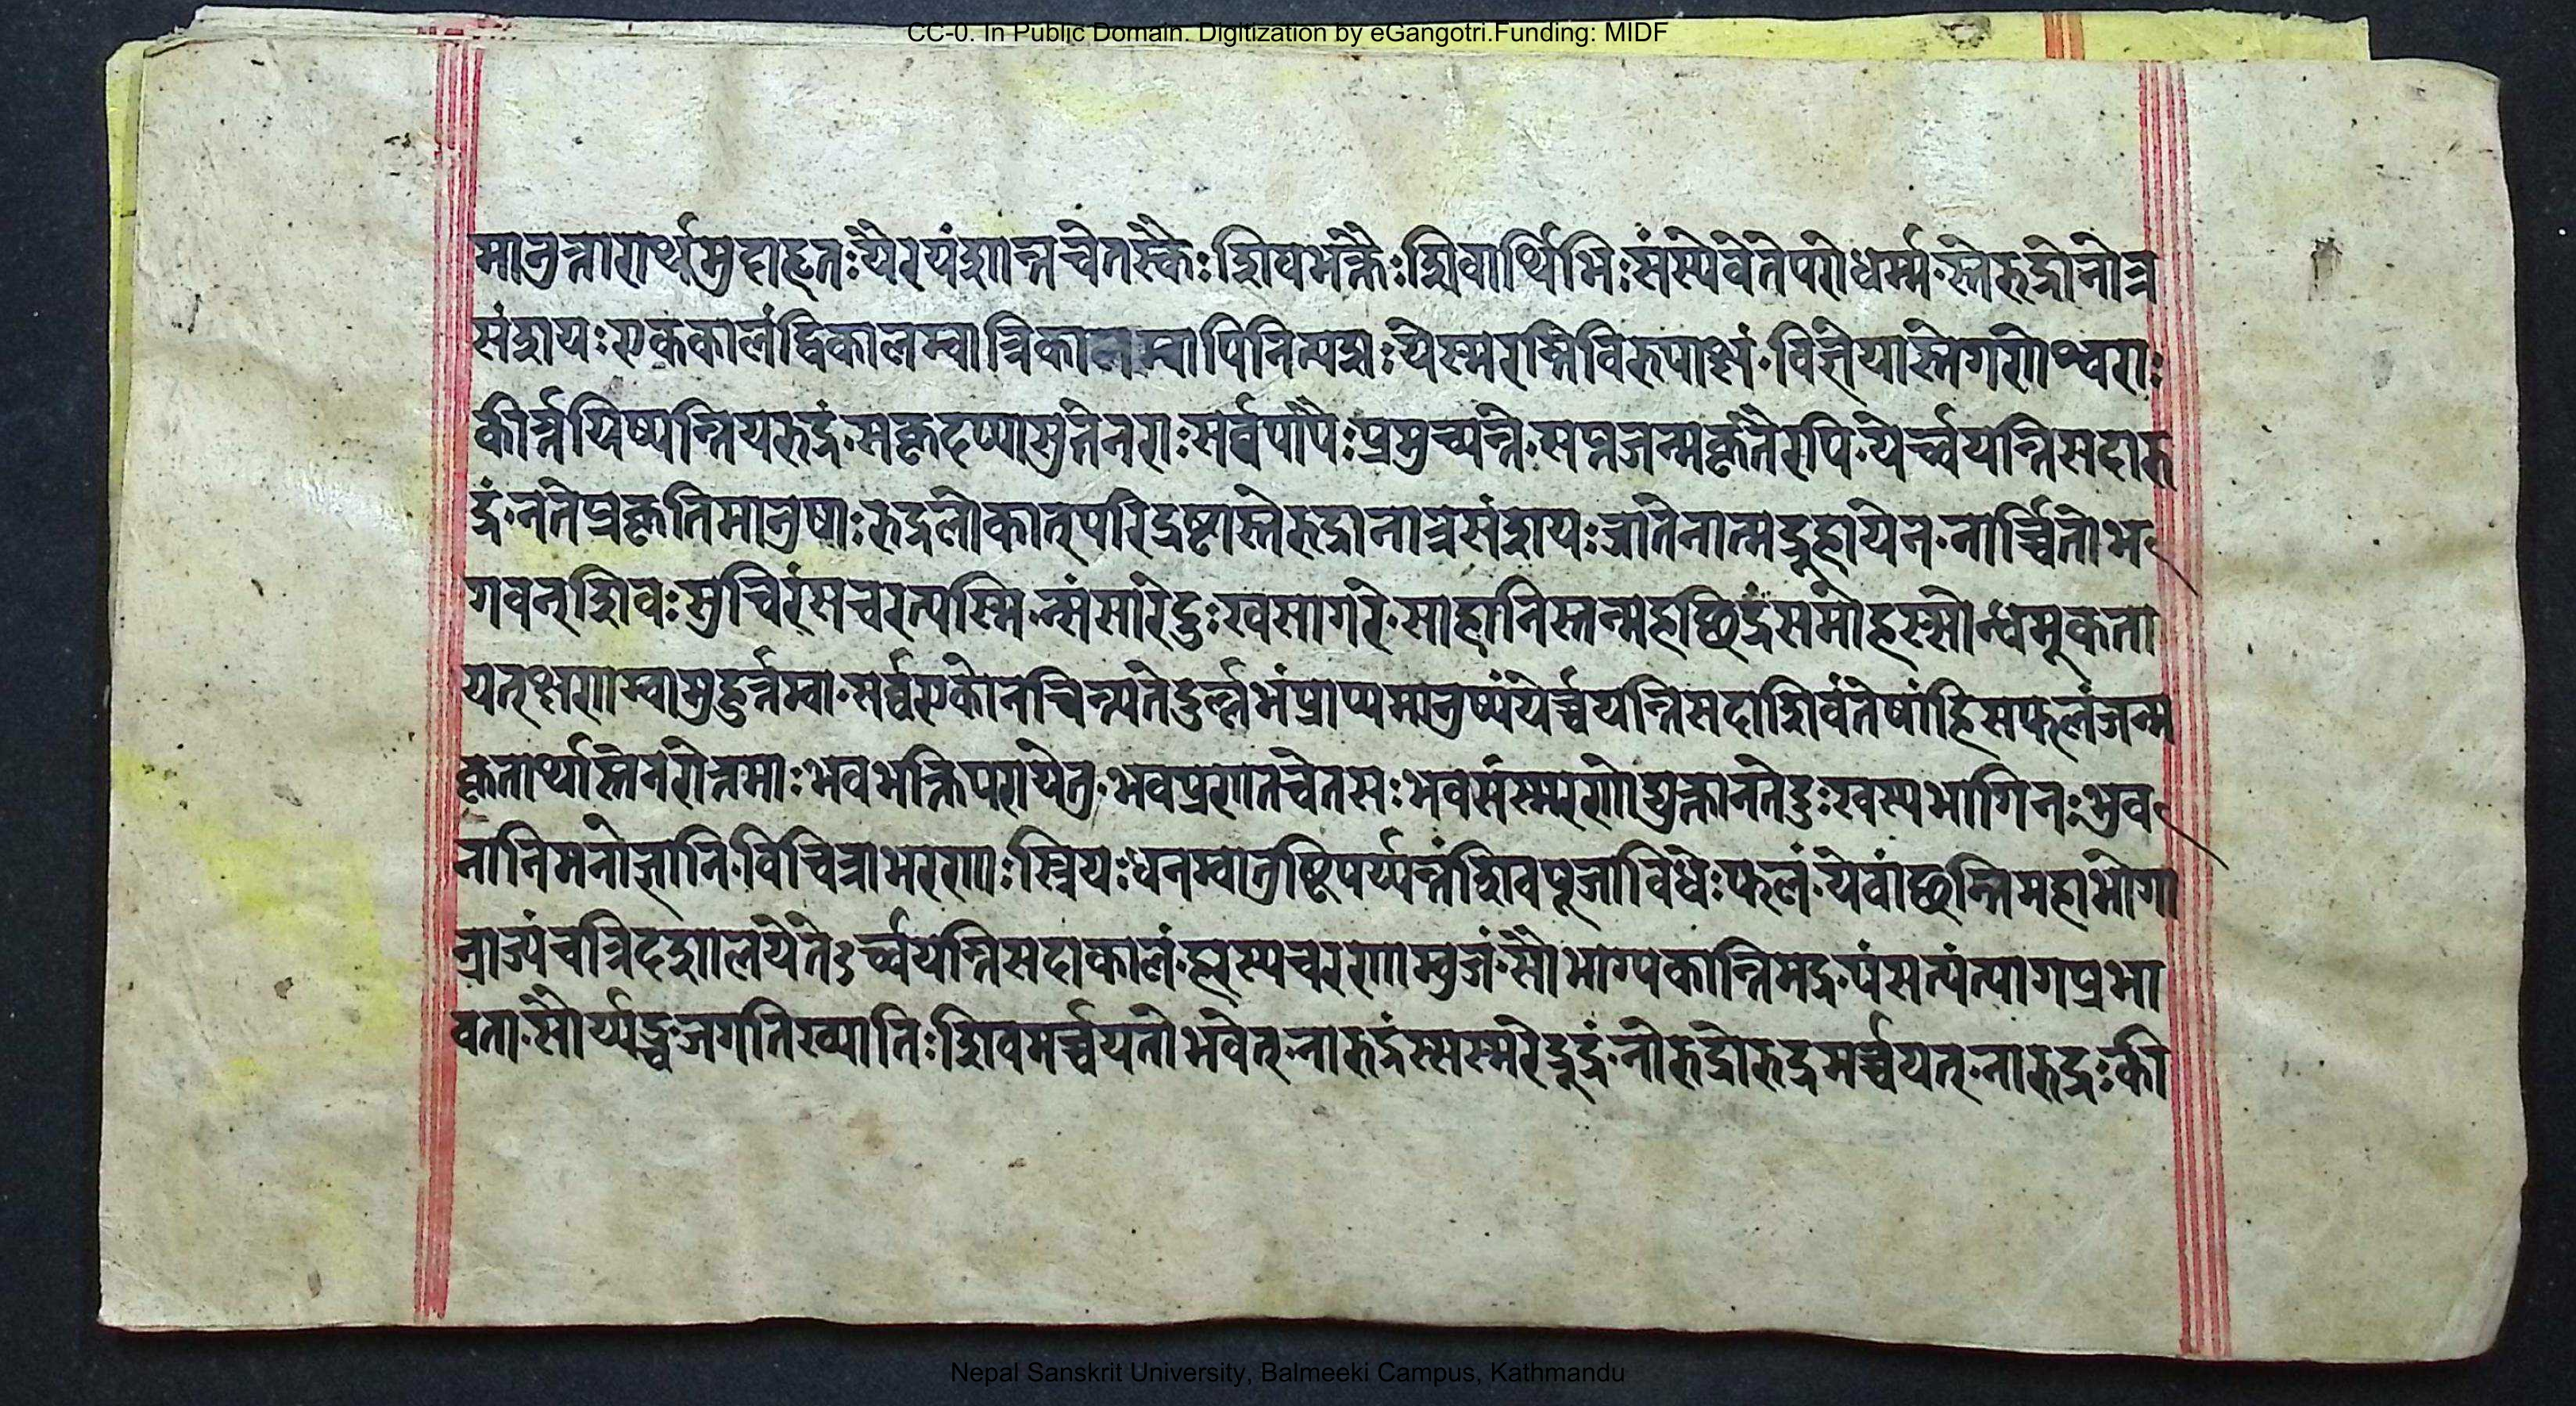 CC-0. In Public Domain. Digitization by eGangotri.Funding: MIDF
मानुत्तारार्थमुदाहृतः यैरयंशान्तचेतस्कैः शिवभक्तैः शिवार्थिभिः संस्येवेतेपरोधर्म्म स्तेरुद्रोनोत्र
संशयः एककालंद्विकालम्वात्रिकालम्वापिनित्यशः येस्मरन्तिविरुपाक्षं विज्ञेयास्तेगणेश्वराः
कीर्त्तयिष्यन्तियेरुद्रं सकृदप्याशुतेनराः सर्वपापैः प्रमुच्यन्ते सप्तजन्मकृतैरपि येर्च्चयन्तिसदारु
द्रं नतेप्रकृतिमानुषाः रुद्रलोकात्परिद्रष्टास्तेरुद्रानात्रसंशयः ज्ञातेनात्मद्रुहायेन नार्च्चितोभ
गवन्शिवः सुचिरंसचरत्यस्मिन्संसारेदुःखसागरे साहानिस्तन्महच्छिद्रंसमोहस्सोन्धमूकता
यत्क्षणम्वामुहुर्त्तम्वा सर्व्वएकोनचिन्त्यतेदुर्ल्लभंप्राप्यमानुष्यंयेर्च्चयन्तिसदाशिवंतेषांहिसफलंजन्म
कृतार्थास्तेनरोत्तमाः भवभक्तिपरायेतु भवप्रणतचेतसः भवसंस्मरणोद्युक्तानतेदुःखस्यभागिनः भुव
नानिमनोज्ञानि विचित्राभरणाः स्त्रियः धनम्वातुष्टिपर्य्यन्तंशिवपूजाविधेः फलं येवांछन्तिमहाभोगा
न्राज्यंचत्रिदशालयेतेऽर्च्चयन्तिसदाकालं हरस्यचरणाम्बुजं सौभाग्यकान्तिमद्रूपंसत्यंत्यागप्रभा
वता सौर्य्यञ्च जगतिख्यातिः शिवमर्च्चयतोभवेत् नारुद्रंस्सस्मरेद्रुद्रं नोरुद्रोरुद्रमर्च्चयत् नारुद्रः की
Nepal Sanskrit University, Balmeeki Campus, Kathmandu